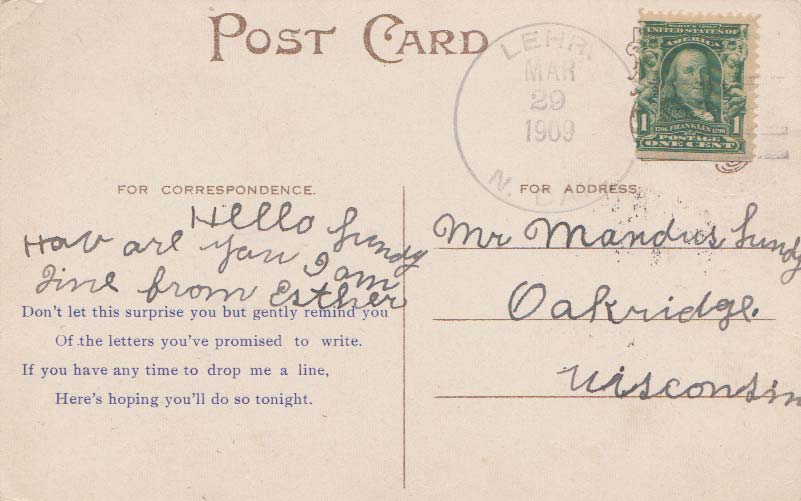 POST CARD
LEHR.
MAR
29
1909
N. DAK.
SERIES 1902
UNITED STATES OF
AMERICA
1 1706 FRANKLIN 1790 1
POSTAGE
ONE CENT
FOR CORRESPONDENCE.
Hello Lundy
How are you I am
Fine from Esther
Don't let this surprise you but gently remind you
Of the letters you've promised to write.
If you have any time to drop me a line,
Here's hoping you'll do so tonight.
FOR ADDRESS.
Mr Mandus Lundy
Oakridge.
Wisconsin